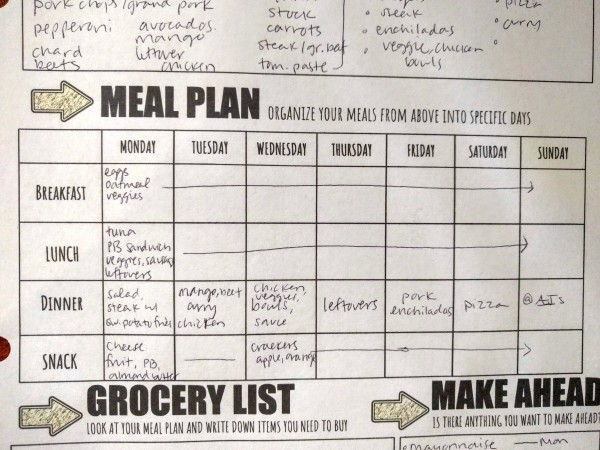 pork chops/grand pork
pepperoni
chard
beets
avocados
mango
leftover
chicken
stock
carrots
steak/gr. beef
tom. paste
• steak
• enchiladas
• veggie, chicken
bowls
• pizza
• curry
•
MEAL PLAN ORGANIZE YOUR MEALS FROM ABOVE INTO SPECIFIC DAYS
MONDAY TUESDAY WEDNESDAY THURSDAY FRIDAY SATURDAY SUNDAY
BREAKFAST
eggs
oatmeal
veggies
LUNCH
tuna
PB sandwich
veggies, sausage
leftovers
DINNER
salad,
steak w/
sw. potato fries
mango, beet
curry
chicken
chicken,
veggie,
bowls,
sauce
leftovers
pork
enchiladas
pizza
@ AJs
SNACK
cheese
fruit, PB,
almond butter
crackers
apple, orange
GROCERY LIST
LOOK AT YOUR MEAL PLAN AND WRITE DOWN ITEMS YOU NEED TO BUY
MAKE AHEAD
IS THERE ANYTHING YOU WANT TO MAKE AHEAD?
mayonnaise — Mon